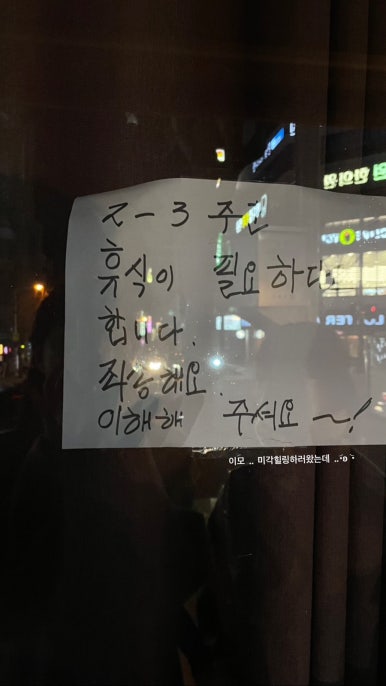 2-3 주간
휴식이 필요하다.
합니다.
죄송해요.
이해해 주셔요 ~!
이모 .. 미각힐링하러왔는데 ..
한의원